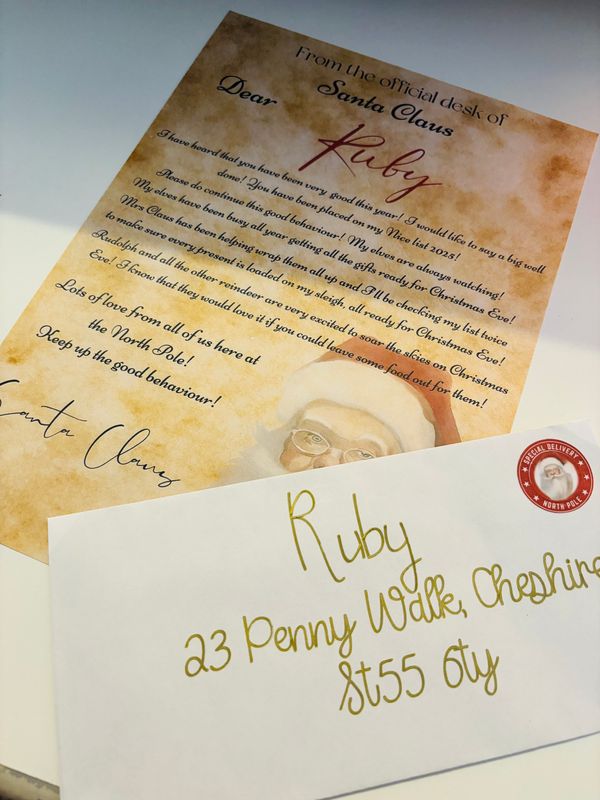 From the official desk of
Santa Claus
Dear
Ruby
I have heard that you have been very good this year! I would like to say a big well
done! You have been placed on my Nice list 2025!
Please do continue this good behaviour! My elves are always watching!
My elves have been busy all year getting all the gifts ready for Christmas Eve!
Mrs Claus has been helping wrap them all up and I'll be checking my list twice
to make sure every present is loaded on my sleigh, all ready for Christmas Eve!
Rudolph and all the other reindeer are very excited to soar the skies on Christmas
Eve! I know that they would love it if you could leave some food out for them!
Lots of love from all of us here at
the North Pole!
Keep up the good behaviour!
Santa Claus
SPECIAL DELIVERY
NORTH POLE
Ruby
23 Penny Walk, Cheshire
St55 6ty